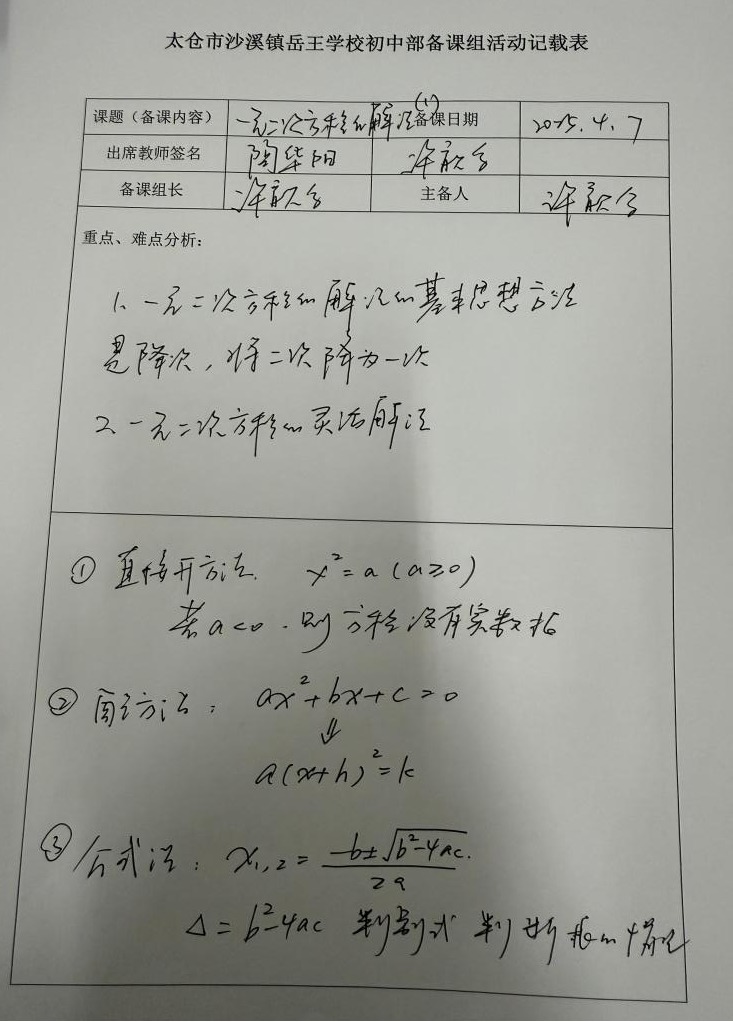 太仓市沙溪镇岳王学校初中部备课组活动记载表
课题（备课内容） 一元二次方程的解法(1) 备课日期 2025.4.7
出席教师签名 陶华阳 许
备课组长 许 主备人 许
重点、难点分析：
1、一元二次方程的解法的基本思想方法
是降次，将二次降为一次
2、一元二次方程的灵活解法
① 直接开方法. x²=a (a≥0)
若a<0.则方程没有实数根
② 配方法： ax²+bx+c=0
⇓
a(x+h)²=k
③ 公式法： x₁,₂= -b±√b²-4ac. / 2a
△=b²-4ac 判别式 判断根的情况